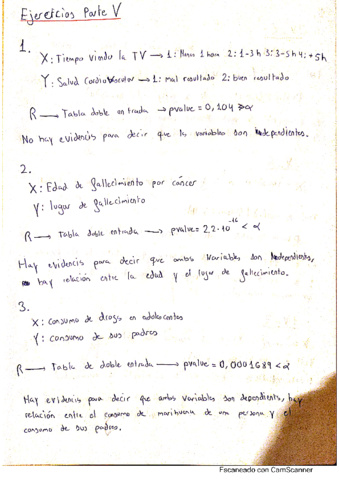 Ejercicios Parte V
1.
X: Tiempo viendo la TV → 1: Menos 1 hora 2: 1-3 h 3: 3-5 h 4: +5h
Y: Salud Cardiovascular → 1: mal resultado 2: bien resultado
R → Tabla doble entrada → pvalue = 0,104 > α
No hay evidencia para decir que las variables son dependientes.
2.
X: Edad de fallecimiento por cáncer
Y: lugar de fallecimiento
R → Tabla doble entrada → pvalue = 2,2·10^-16 < α
Hay evidencia para decir que ambas variables son dependientes,
hay relación entre la edad y el lugar de fallecimiento.
3.
X: consumo de drogs en adolescentes
Y: consumo de sus padres
R → Tabla de doble entrada → pvalue = 0,0001689 < α
Hay evidencia para decir que ambas variables son dependients, hay
relación entre el consumo de marihuana de una persona y el
consumo de sus padres.
Escaneado con CamScanner